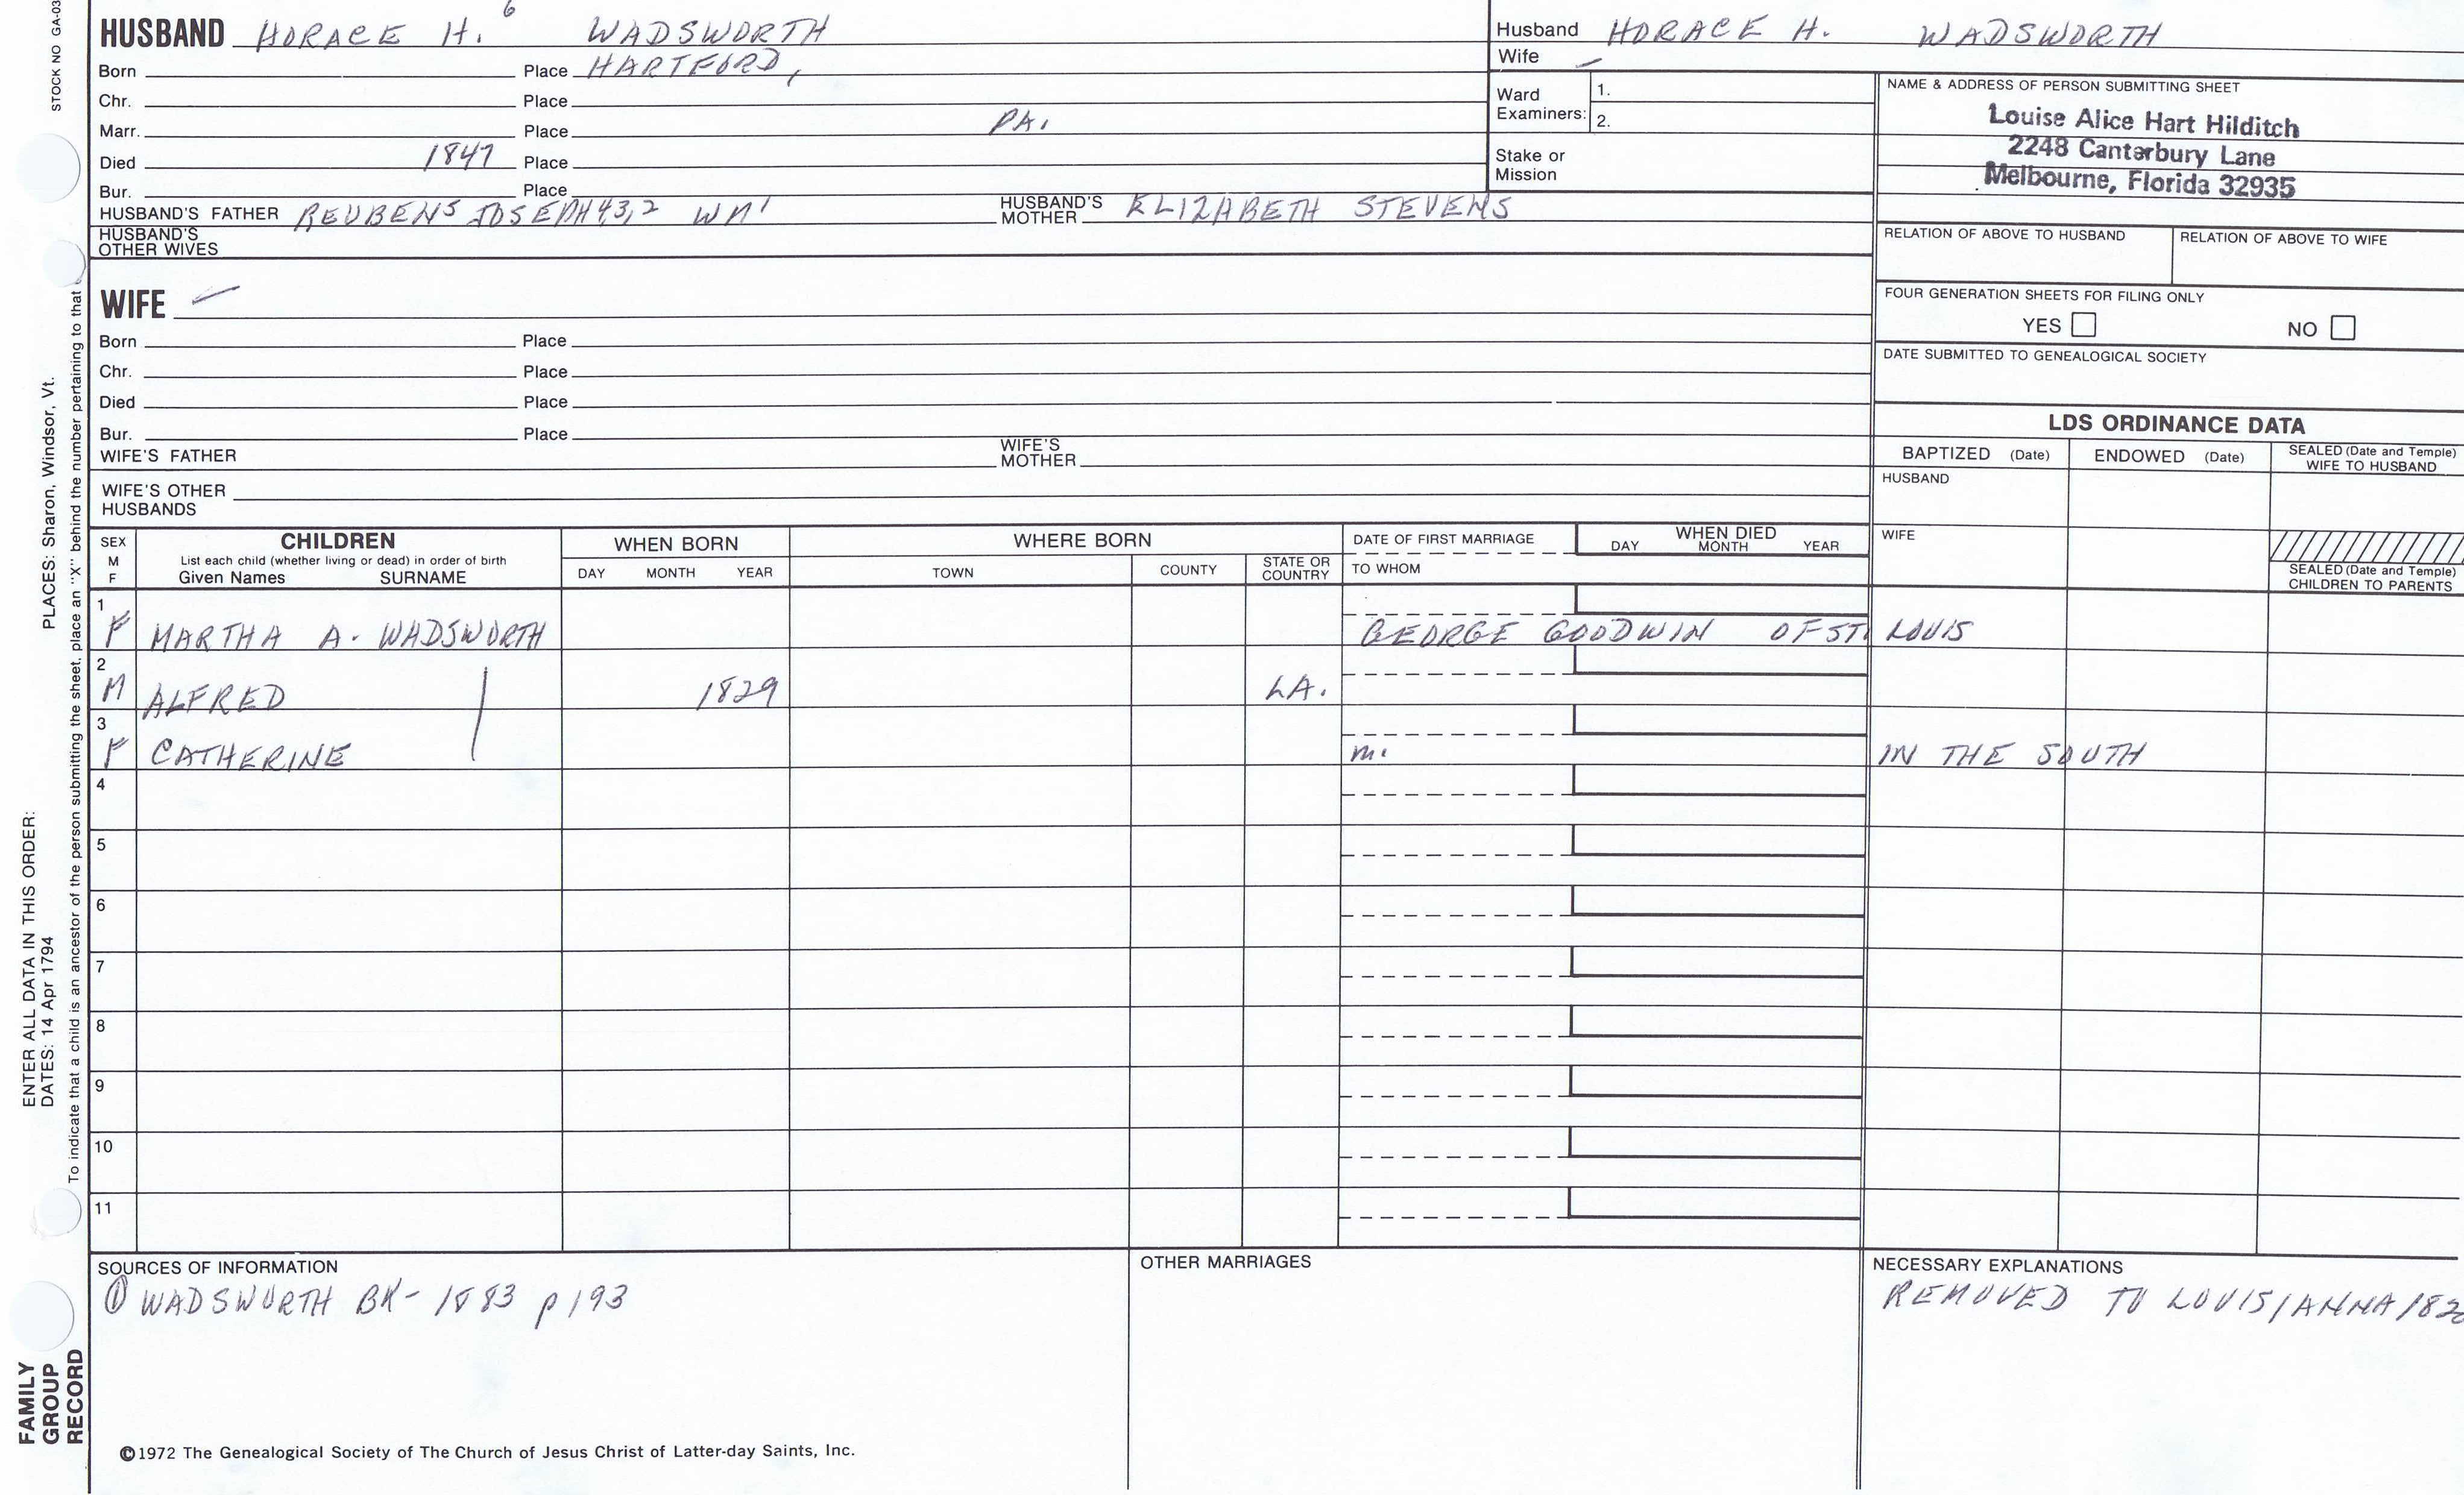 STOCK NO GA-03
HUSBAND HORACE H. 6 WADSWORTH
Born Place HARTFORD,
Chr. Place
Marr. Place PA.
Died 1847 Place
Bur. Place
HUSBAND'S FATHER REUBEN5 JOSEPH4,3,2 WM1 HUSBAND'S MOTHER ELIZABETH STEVENS
HUSBAND'S OTHER WIVES
Husband HORACE H. WADSWORTH
Wife –
Ward Examiners: 1.
2.
Stake or Mission
NAME & ADDRESS OF PERSON SUBMITTING SHEET
Louise Alice Hart Hilditch
2248 Canterbury Lane
Melbourne, Florida 32935
RELATION OF ABOVE TO HUSBAND RELATION OF ABOVE TO WIFE
FOUR GENERATION SHEETS FOR FILING ONLY
YES NO
DATE SUBMITTED TO GENEALOGICAL SOCIETY
WIFE –
Born Place
Chr. Place
Died Place
Bur. Place
WIFE'S FATHER WIFE'S MOTHER
WIFE'S OTHER HUSBANDS
LDS ORDINANCE DATA
BAPTIZED (Date) ENDOWED (Date) SEALED (Date and Temple) WIFE TO HUSBAND
HUSBAND
WIFE
SEALED (Date and Temple) CHILDREN TO PARENTS
SEX M F
CHILDREN
List each child (whether living or dead) in order of birth
Given Names SURNAME
WHEN BORN
DAY MONTH YEAR
WHERE BORN
TOWN COUNTY STATE OR COUNTRY
DATE OF FIRST MARRIAGE
TO WHOM
WHEN DIED
DAY MONTH YEAR
1 F MARTHA A. WADSWORTH GEORGE GOODWIN OF ST. LOUIS
2 M ALFRED 1829 LA.
3 F CATHERINE m. IN THE SOUTH
4
5
6
7
8
9
10
11
SOURCES OF INFORMATION
① WADSWORTH BK- 1883 p 193
OTHER MARRIAGES
NECESSARY EXPLANATIONS
REMOVED TO LOUISIANNA
©1972 The Genealogical Society of The Church of Jesus Christ of Latter-day Saints, Inc.
FAMILY
GROUP
RECORD
ENTER ALL DATA IN THIS ORDER:
DATES: 14 Apr 1794 PLACES: Sharon, Windsor, Vt.
To indicate that a child is an ancestor of the person submitting the sheet, place an "X" behind the number pertaining to that